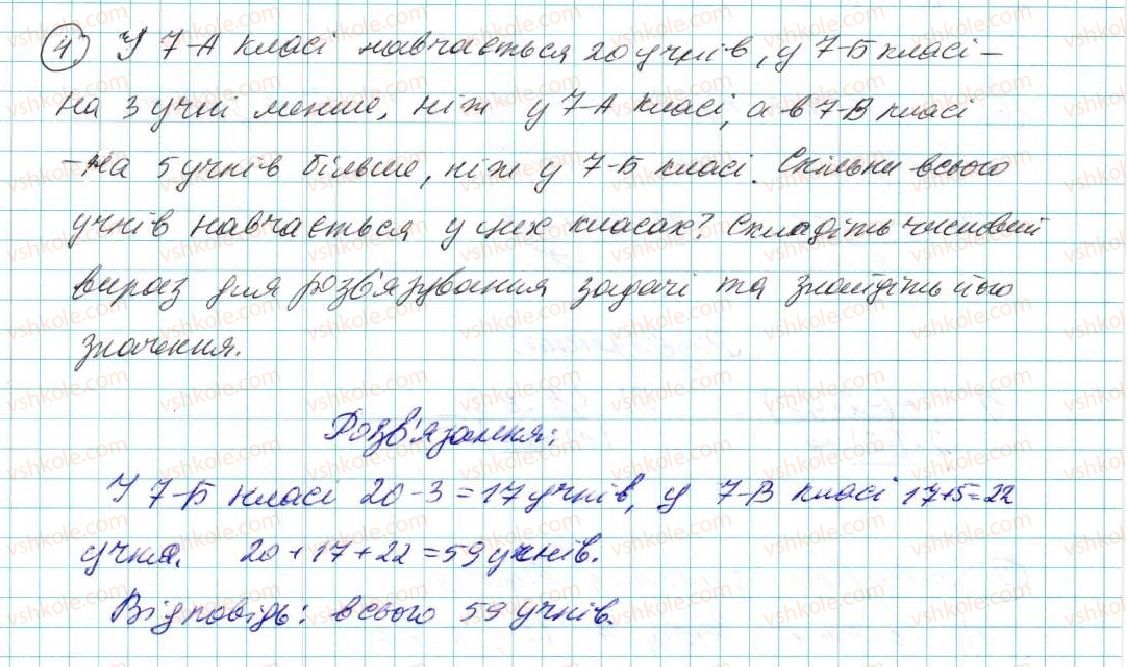 4) У 7-А класі навчається 20 учнів, у 7-Б класі –
на 3 учні менше, ніж у 7-А класі, а в 7-В класі
– на 5 учнів більше, ніж у 7-Б класі. Скільки всього
учнів навчається у цих класах? Складіть числовий
вираз для розв'язування задачі та знайдіть його
значення.
Розв'язання:
У 7-Б класі 20-3=17 учнів, у 7-В класі 17+5=22
учня. 20+17+22=59 учнів.
Відповідь: всього 59 учнів.